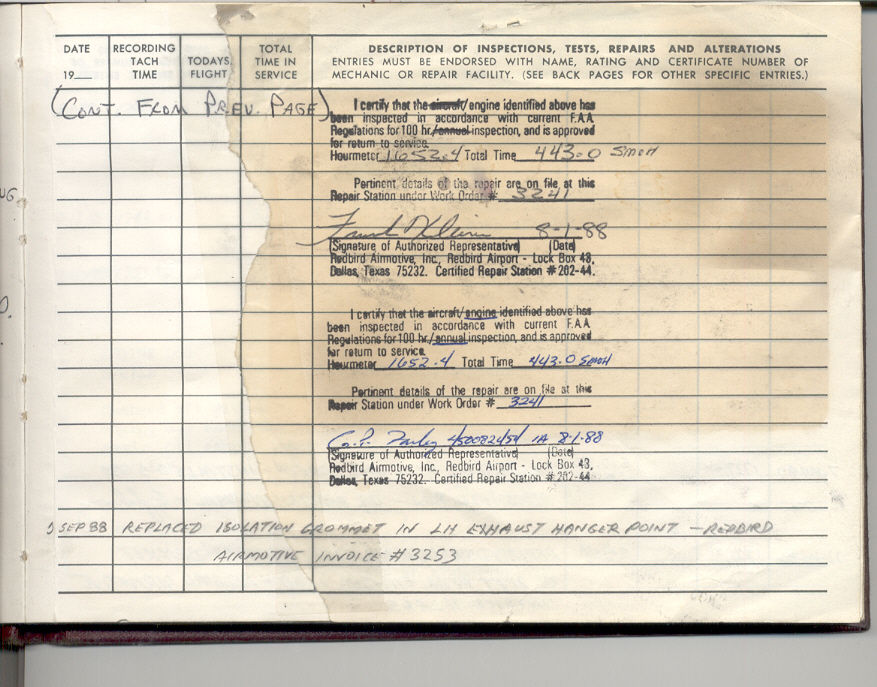 DATE
19__
RECORDING TACH TIME
TODAYS FLIGHT
TOTAL TIME IN SERVICE
DESCRIPTION OF INSPECTIONS, TESTS, REPAIRS AND ALTERATIONS
ENTRIES MUST BE ENDORSED WITH NAME, RATING AND CERTIFICATE NUMBER OF
MECHANIC OR REPAIR FACILITY. (SEE BACK PAGES FOR OTHER SPECIFIC ENTRIES.)
(CONT. FROM PREV. PAGE)
I certify that the aircraft/engine identified above has
been inspected in accordance with current F.A.A.
Regulations for 100 hr./annual inspection, and is approved
for return to service.
Hourmeter 1652.4 Total Time 443.0 SMOH
Pertinent details of the repair are on file at this
Repair Station under Work Order # 3241
8-1-88
(Signature of Authorized Representative) (Date)
Redbird Airmotive, Inc., Redbird Airport - Lock Box 43,
Dallas, Texas 75232. Certified Repair Station #202-44.
I certify that the aircraft/engine identified above has
been inspected in accordance with current F.A.A.
Regulations for 100 hr./annual inspection, and is approved
for return to service.
Hourmeter 1652.4 Total Time 443.0 SMOH
Pertinent details of the repair are on file at this
Repair Station under Work Order # 3241
IA 8-1-88
(Signature of Authorized Representative) (Date)
Redbird Airmotive, Inc., Redbird Airport - Lock Box 43,
Dallas, Texas 75232. Certified Repair Station #202-44
SEP 88 REPLACED ISOLATION GROMMET IN LH EXHAUST HANGER POINT — REDBIRD
AIRMOTIVE INVOICE # 3253